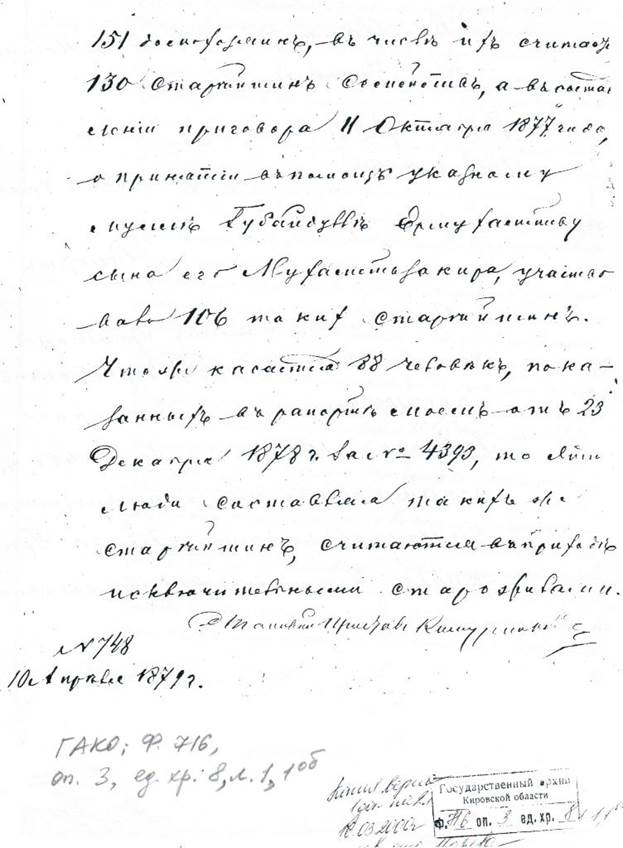 151 домохозяинъ, въ числѣ ихъ считаетъ
130 старѣйшинъ состоитъ, а въ состав
леніи приговора 11 Октября 1877 года,
о принятіи въ помощь указному
муллѣ Губайдуллѣ
сына его Мухаметьзакира, участво
вало 106 такихъ старѣйшинъ.
Что же касается 88 человѣкъ, пока-
занныхъ въ рапортѣ моемъ отъ 23
Декабря 1878 г. за № 4393, то эти
люди составляя такихъ же
старѣйшинъ, считаются въ приходѣ
исключительными старожилами.
Становой Приставъ
№ 748
10 Апрѣля 1879 г.
ГАКО; Ф. 716,
оп. 3, ед. хр. 8, л. 1, 1об
Копия верна
Государственный архив
Кировской области
Ф. 716 оп. 3 ед. хр. 8